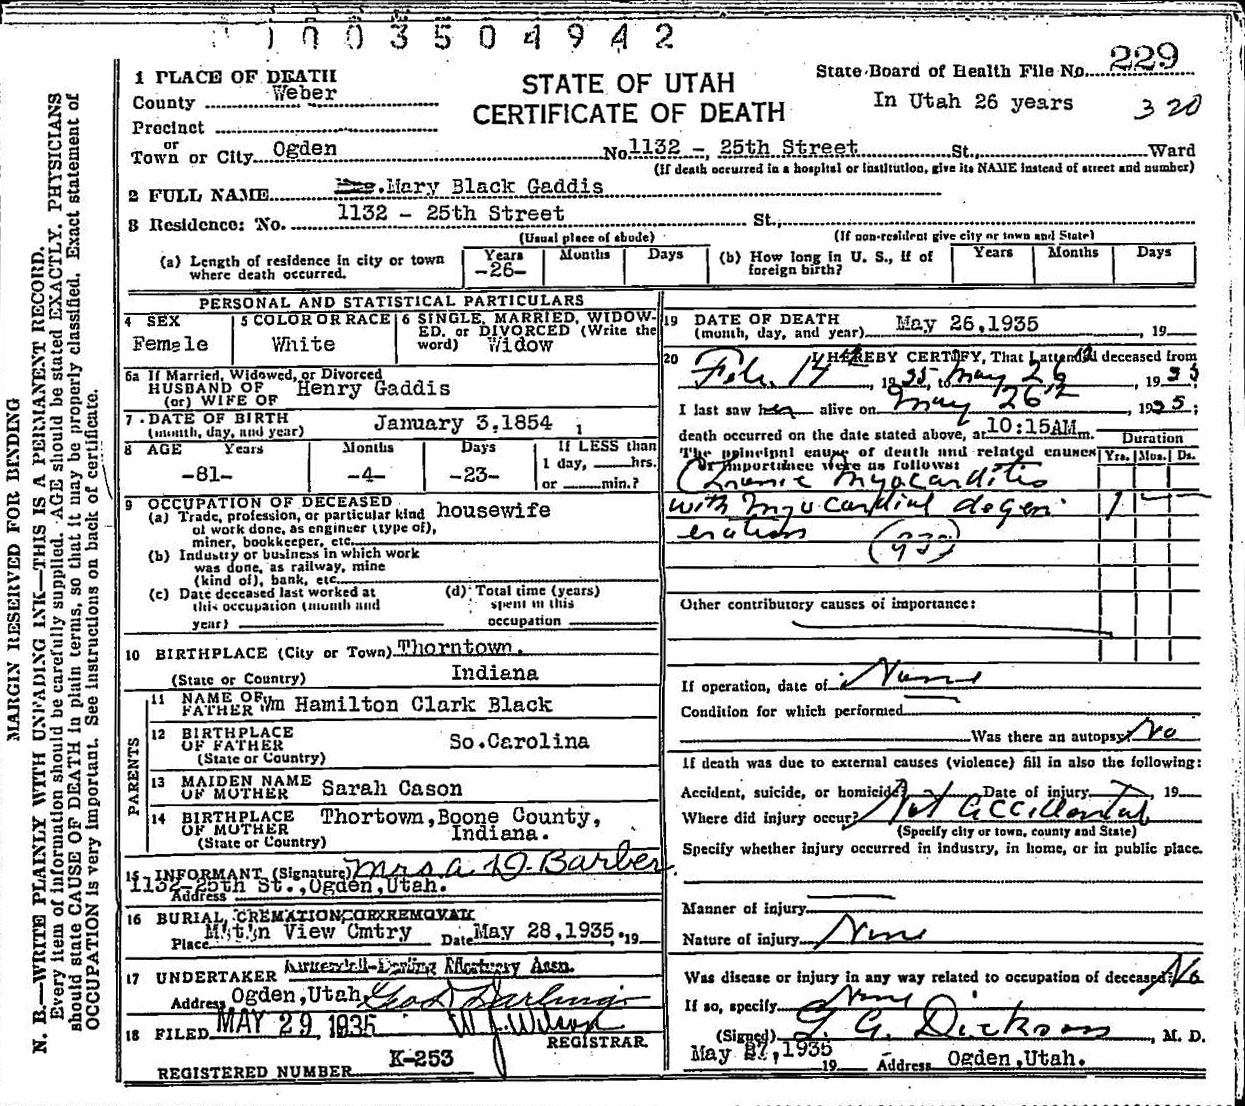 1003504942
229
State Board of Health File No.
In Utah 26 years
320
STATE OF UTAH
CERTIFICATE OF DEATH
1 PLACE OF DEATH
County Weber
Precinct
or
Town or City Ogden No. 1132 -, 25th Street St., Ward
(If death occurred in a hospital or institution, give its NAME instead of street and number)
2 FULL NAME Mrs. Mary Black Gaddis
3 Residence: No. 1132 - 25th Street St.,
(Usual place of abode) (If non-resident give city or town and State)
(a) Length of residence in city or town where death occurred. Years -26- Months Days
(b) How long in U. S., if of foreign birth? Years Months Days
PERSONAL AND STATISTICAL PARTICULARS
4 SEX Female
5 COLOR OR RACE White
6 SINGLE, MARRIED, WIDOWED, or DIVORCED (Write the word) Widow
6a If Married, Widowed, or Divorced
HUSBAND OF
(or) WIFE OF Henry Gaddis
7 DATE OF BIRTH
(month, day, and year) January 3,1854
8 AGE Years Months Days If LESS than
-81- -4- -23- 1 day, hrs.
or min.?
9 OCCUPATION OF DECEASED housewife
(a) Trade, profession, or particular kind
of work done, as engineer (type of),
miner, bookkeeper, etc.
(b) Industry or business in which work
was done, as railway, mine
(kind of), bank, etc.
(c) Date deceased last worked at
this occupation (month and
year)
(d) Total time (years)
spent in this
occupation
10 BIRTHPLACE (City or Town) Thorntown.
(State or Country) Indiana
PARENTS
11 NAME OF
FATHER Wm Hamilton Clark Black
12 BIRTHPLACE
OF FATHER So.Carolina
(State or Country)
13 MAIDEN NAME
OF MOTHER Sarah Cason
14 BIRTHPLACE
OF MOTHER Thortown,Boone County,
(State or Country) Indiana.
15 INFORMANT (Signature) Mrs. A D. Barber
1132-25th St.,Ogden,Utah.
Address
16 BURIAL, CREMATION, OR REMOVAL
Place Mt'n View Cmtry Date May 28,1935. 19
17 UNDERTAKER Darling Mortuary Assn.
Address Ogden,Utah Geo D Darling
18 FILED MAY 29 1935 W J. Wilson
REGISTRAR
K-253
REGISTERED NUMBER
19 DATE OF DEATH
(month, day, and year) May 26,1935 , 19
20 I HEREBY CERTIFY, That I attended deceased from
Feb. 14th, 1935, to May 26th, 1935
I last saw her alive on May 26th, 1935;
death occurred on the date stated above, at 10:15AM m.
The principal cause of death and related causes
or importance were as follows:
Duration
Yrs. Mos. Ds.
Chronic Myocarditis
with myocardial degen 1 - -
eration
(930)
Other contributory causes of importance:
If operation, date of None
Condition for which performed
Was there an autopsy? No
If death was due to external causes (violence) fill in also the following:
Accident, suicide, or homicide? Date of injury , 19
Where did injury occur? Not accidental
(Specify city or town, county and State)
Specify whether injury occurred in industry, in home, or in public place.
Manner of injury
Nature of injury None
Was disease or injury in any way related to occupation of deceased? No
If so, specify None
(Signed) Dickson , M. D.
May 27,1935
19 Address Ogden,Utah.
MARGIN RESERVED FOR BINDING
N. B.—WRITE PLAINLY WITH UNFADING INK—THIS IS A PERMANENT RECORD.
Every item of information should be carefully supplied. AGE should be stated EXACTLY. PHYSICIANS
should state CAUSE OF DEATH in plain terms, so that it may be properly classified. Exact statement of
OCCUPATION is very important. See instructions on back of certificate.